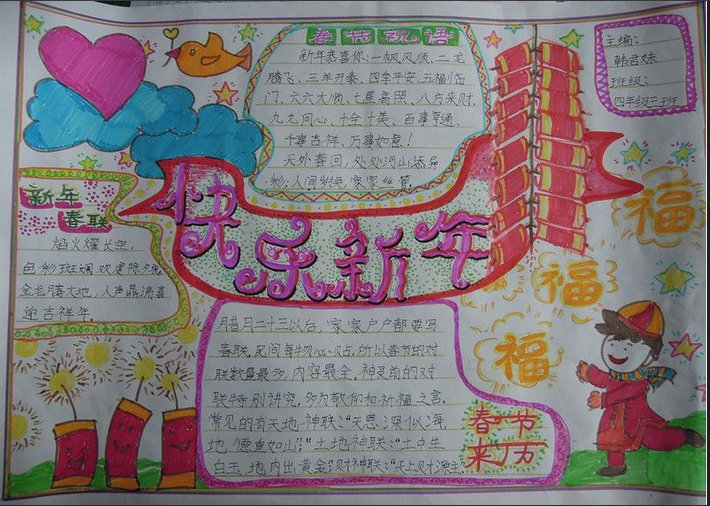 春节祝语
新年恭喜你：一帆风顺、二龙
腾飞、三羊开泰、四季平安、五福临
门、六六大顺、七星高照、八方来财、
九九同心、十全十美、百事亨通、
千事吉祥、万事如意！
天外春回，处处河山添异
彩；人间岁换，家家丝管
主编：
韩君妹
班级：
四年级三班
新年
春联
焰火耀长空，
色彩斑斓欢度除夕夜
金龙腾大地，人声鼎沸喜
迎吉祥年。
快乐新年
福
福
福
腊月二十三以后，家家户户都要写
春联，民间每物必贴，所以春节的对
联数量最多，内容最全。神灵前的对
联特别讲究，多为敬仰和祈福之言。
常见的有天地神联：“天恩深似海，
地德重如山；”土地神联：“土中生
白玉，地内出黄金；”财神联：“天上财源主
春节
来历